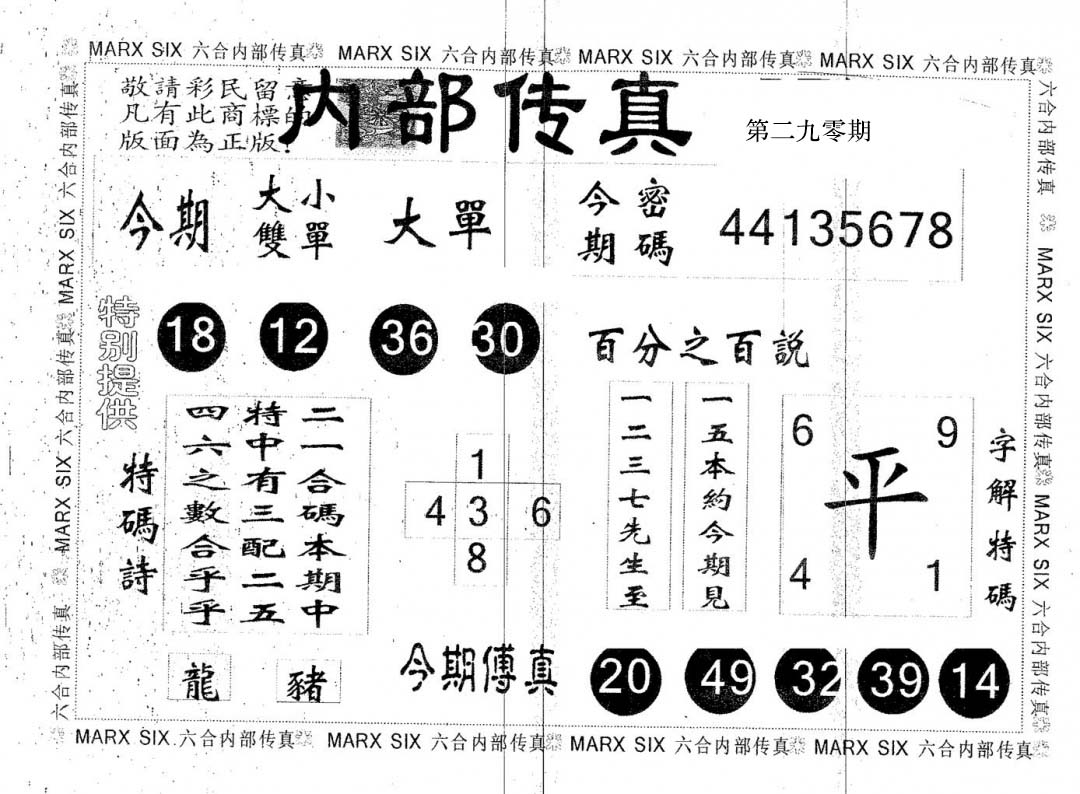 MARX SIX 六合内部传真 MARX SIX 六合内部传真 MARX SIX 六合内部传真 MARX SIX 六合内部传真
敬請彩民留意
凡有此商標的
版面為正版!
内部传真
第二九零期
今期
大小
雙單
大單
今密
期碼
44135678
特别提供
18 12 36 30
百分之百説
特碼詩
二一合碼本期中
特中有三配二五
四六之數合乎乎
1
4 3 6
8
一五本約今期見
一二三七先生至
6 9
平
4 1
字解特碼
龍 豬
今期傳真
20 49 32 39 14
六合内部传真 MARX SIX 六合内部传真 MARX SIX 六合内部传真
六合内部传真 MARX SIX 六合内部传真 MARX SIX 六合内部传真
MARX SIX 六合内部传真 MARX SIX 六合内部传真 MARX SIX 六合内部传真 MARX SIX 六合内部传真